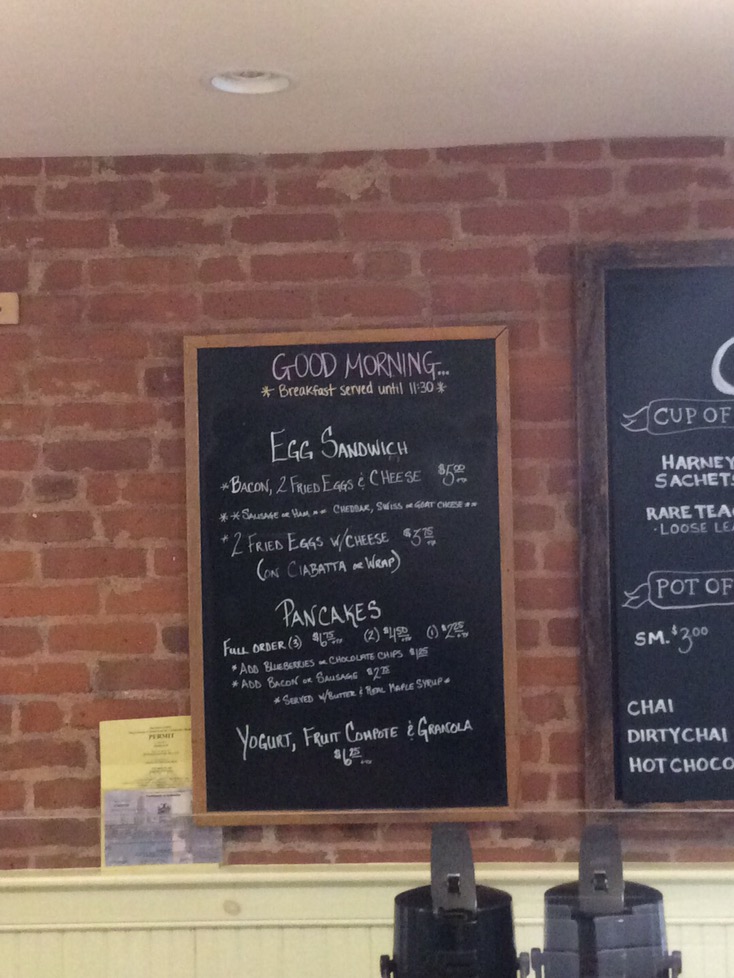 GOOD MORNING...
* Breakfast served until 11:30 *
EGG SANDWICH
* BACON, 2 FRIED EGGS & CHEESE $5.00
* * SAUSAGE OR HAM ** CHEDDAR, SWISS OR GOAT CHEESE **
* 2 FRIED EGGS W/CHEESE $3.75
(ON CIABATTA OR WRAP)
PANCAKES
FULL ORDER (3) $6.75 (2) $4.50 (1) $2.25
* ADD BLUEBERRIES OR CHOCOLATE CHIPS
* ADD BACON OR SAUSAGE $2.75
* SERVED W/BUTTER & REAL MAPLE SYRUP *
YOGURT, FRUIT COMPOTE & GRANOLA
$6.25
PERMIT
CUP OF
HARNEY
SACHETS
RARE TEA
- LOOSE LEA
POT OF
SM. $3.00
CHAI
DIRTY CHAI
HOT CHOCO